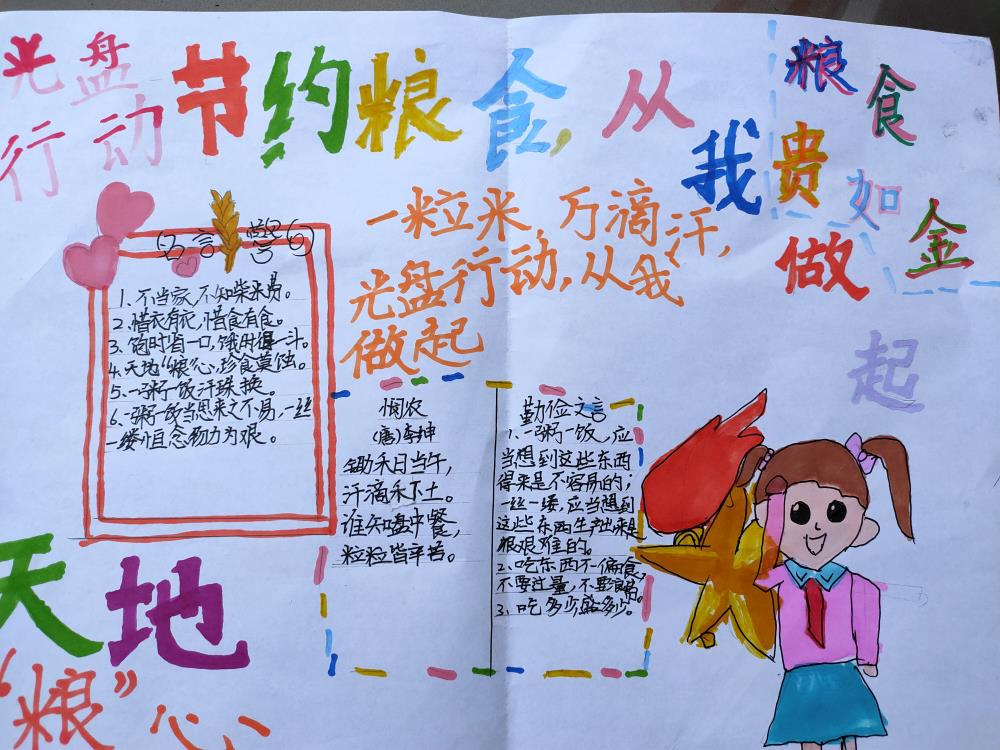 光盘
行动
节约粮食,从
我
做
起
粮食
贵如
金
一粒米,万滴汗,
光盘行动,从我
做起
名言警句
1、不当家,不知柴米贵。
2、惜衣有衣,惜食有食。
3、饱时省一口,饿时得一斗。
4、天地“粮”心,珍食莫蚀。
5、一粥一饭汗珠换。
6、一粥一饭当思来之不易,一丝
一缕恒念物力为艰。
悯农
(唐)李绅
锄禾日当午,
汗滴禾下土。
谁知盘中餐,
粒粒皆辛苦。
勤俭之言
1、一粥一饭,应
当想到这些东西
得来是不容易的;
一丝一缕,应当想到
这些东西生产出来是
很艰难的。
2、吃东西不偏食,
不要过量,不要
3、吃多少盛多少。
天地
“粮”心